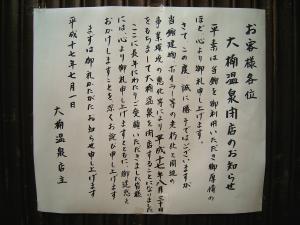 お客様各位
大楠温泉閉店のお知らせ
平素は当館を御利用いただき御厚情の
ほど心より御礼申し上げます
さてこの度誠に勝手ではございますが
当館建物ボイラー等の老朽化と周辺の
事業環境の悪化等により平成十七年八月三十日
をもちまして大楠温泉を閉店することになりました
ここに長年にわたりご愛顧いただきました皆様
には心より御礼申し上げますとともに御迷惑を
おかけしますことを深くお詫び申し上げます
まずは御礼かたがたお知らせ申し上げます
平成十七年七月一日
大楠温泉店主